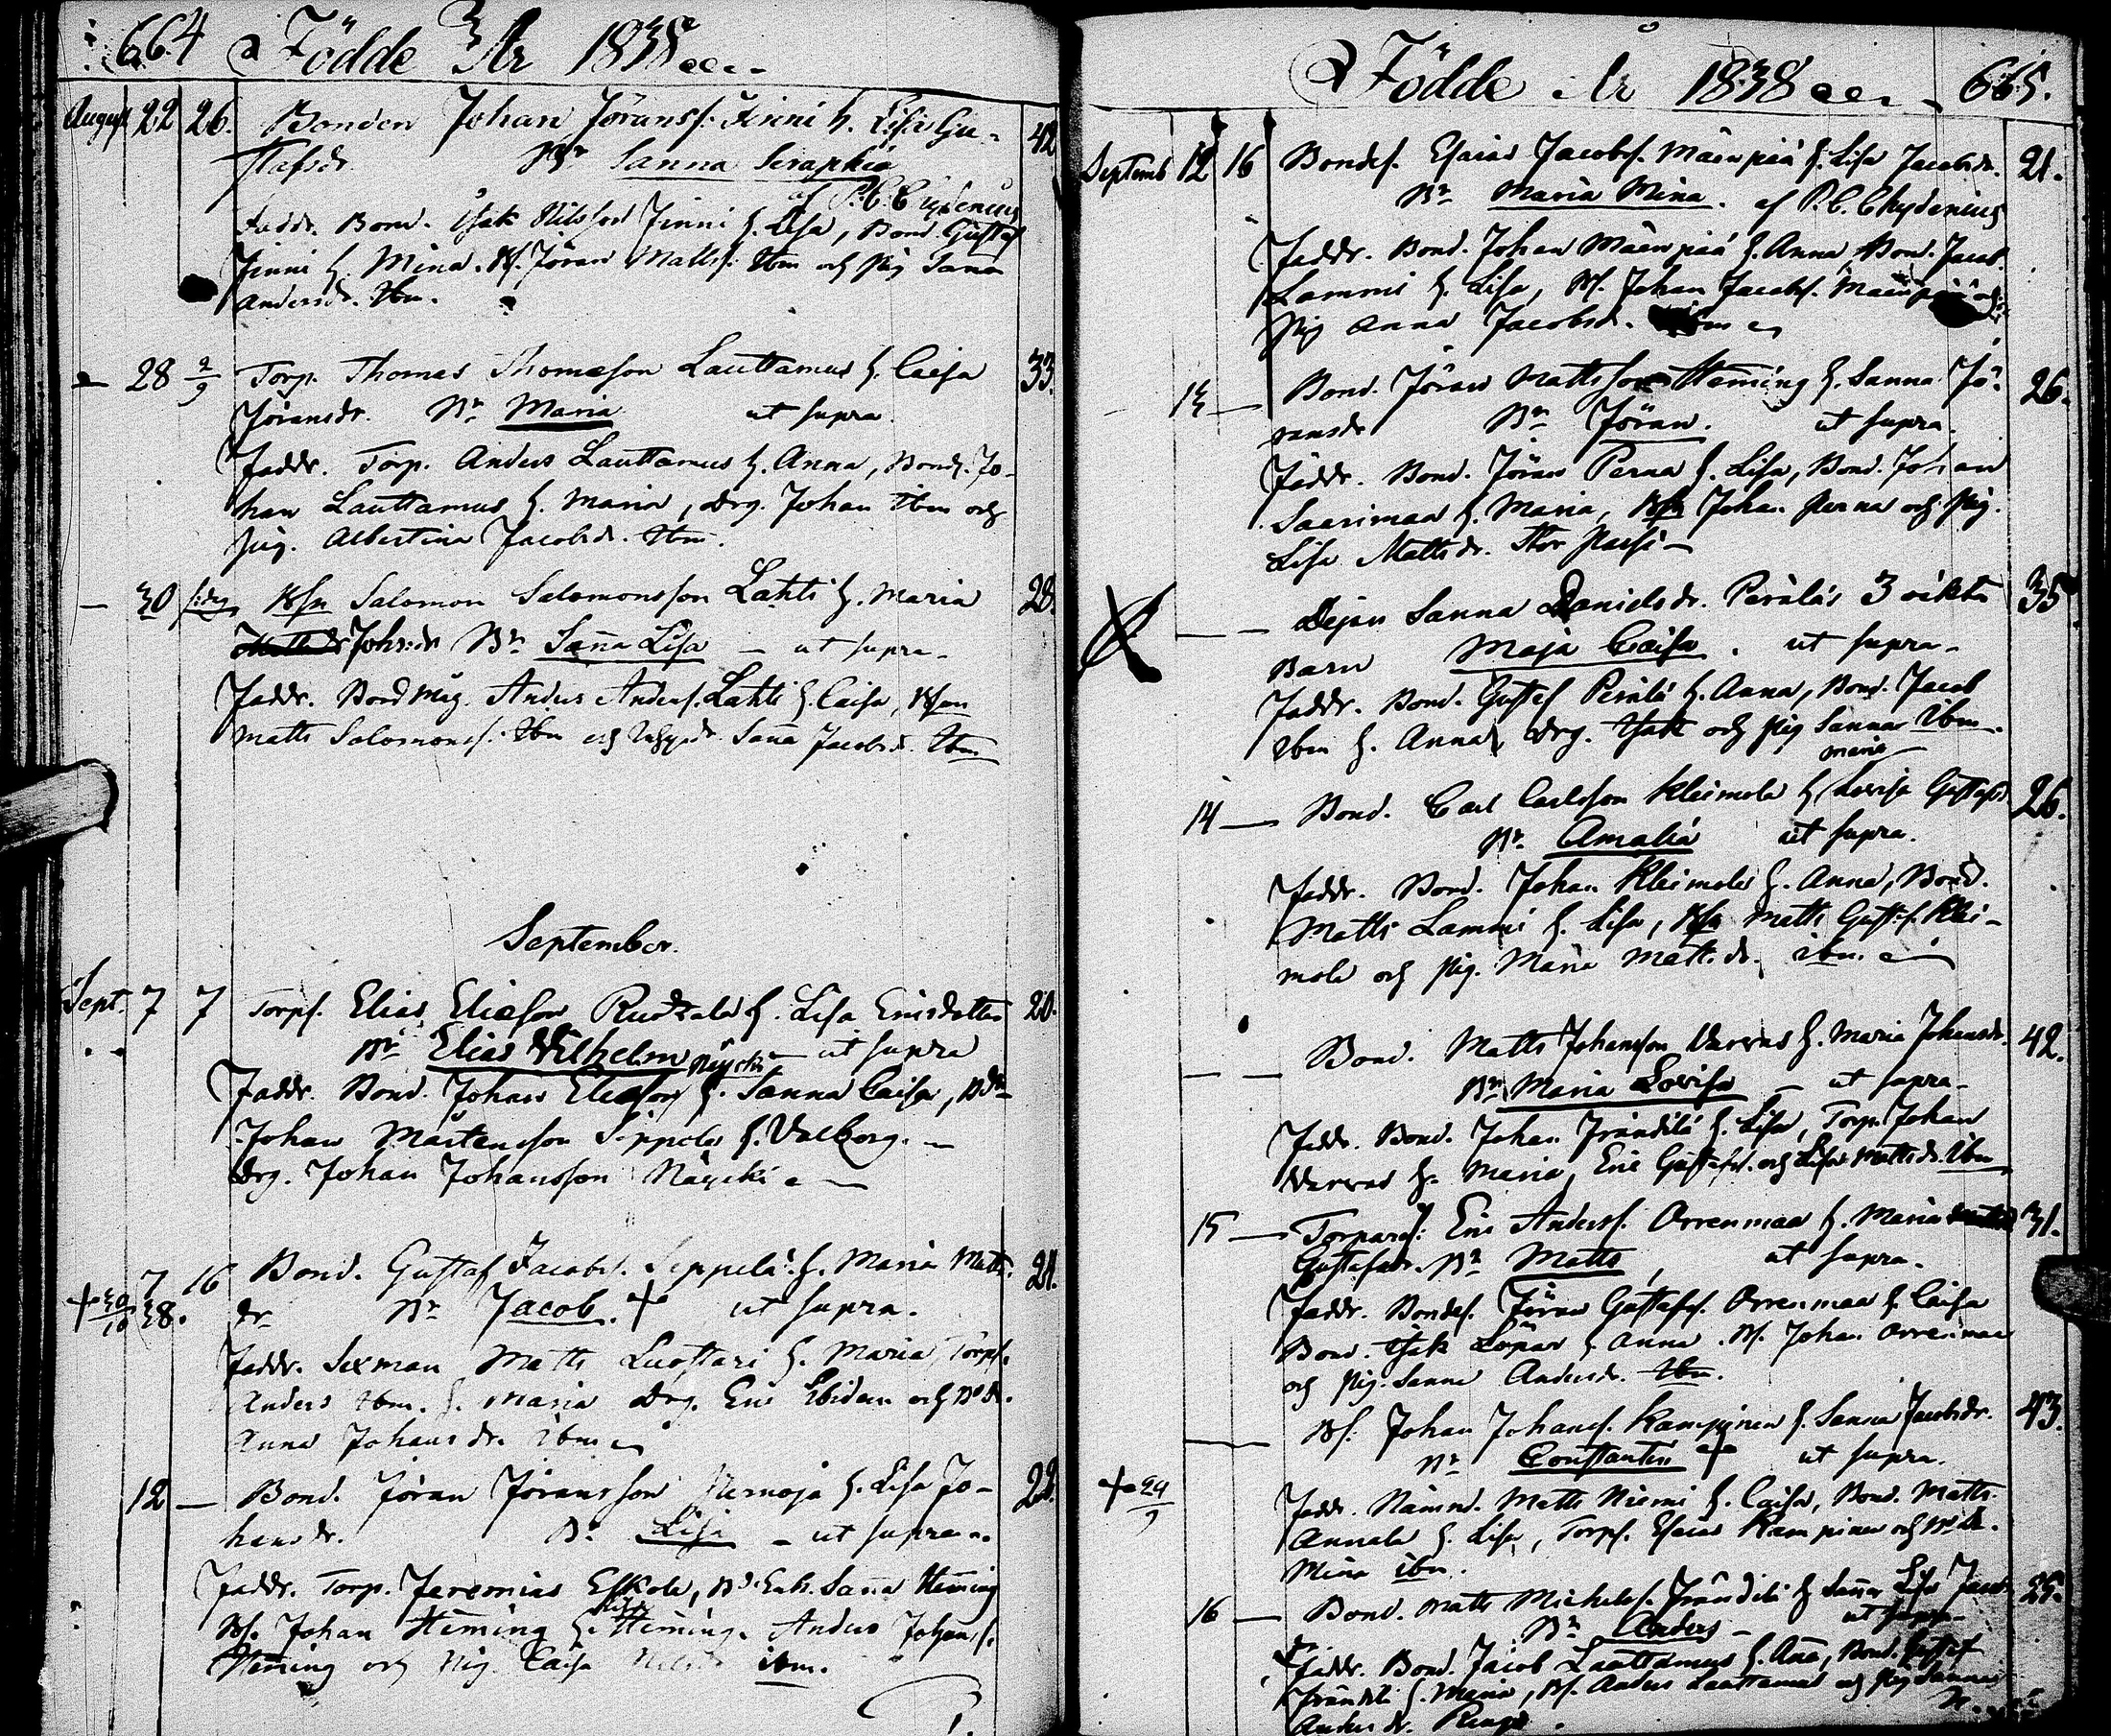 664 Födde År 1838
August 22 26. Bonden Johan Jöranss. Jinni h. Lisa Gu- 42
stafsdr. Bn Sanna Seraphia
af P.C. Chydenius
Faddr. Bond. Isak Nilsson Jinni h. Lisa, Bond. Gustaf
Jinni h. Mina. Ks. Jöran Matts. Ibm och Pig Sanna
Andersdr. Ibm.
— 28 2/9 Torp. Thomas Thomasson Lauttamus h. Caisa 33.
Jöransdr. Bn Maria ut supra.
Faddr. Torp. Anders Lauttamus h. Anna, Bonds. Jo-
han Lauttamus h. Maria, Drg. Johan Ibm och
Pig. Albertina Jacobsdr. Ibm.
— 30 Salomon Salomonsson Lahti h. Maria 28.
Johsdr Bn Sanna Lisa — ut supra.
Faddr. Bond Måg. Anders Anders. Lahti h. Caisa,
Matts Salomons. Ibm och Sanna Jacobsd. Ibm
September.
Sept. 7 7 Torps. Elias Eliasson h. Lisa Ericsdotter 20.
Bn Elias Vilhelm Näycki — ut supra
Faddr. Bond. Johan Eliasson h. Sanna Caisa,
Johan Mårtensson Seppelä h. Valborg. —
Drg. Johan Johansson Näycki
7 16 Bond. Gustaf Jacobs. Seppelä h. Maria Matts- 21.
+ 30/10 38. dr Bn Jacob. + ut supra.
Faddr. Sexman Matts Luostari h. Maria, Torps.
Anders Ibm. h. Maria Drg. Eric Ibidem och
Anna Johansdr. Ibm
12 — Bond. Jöran Jöransson h. Lisa Jo- 22.
hansdr. Bn Lisa — ut supra.
Faddr. Torp. Jeremias Eskola, Enk. Sanna Heming
Ks. Johan Heming h. Lisa Heming. Anders Johans.
Heming och Pig. Caisa ibm.
Födde År 1838 665.
Septemb 12 16 Bondes. Esaias Jacobs. Mäenpää h. Lisa Jacobsdr. 21.
Bn Maria Mina. af P.C. Chydenius
Faddr. Bond. Johan Mäenpää h. Anna, Bond. Jacob
Lammi h. Lisa, Ks. Johan Jacobs. Mäenpää och
Pig Anna Jacobsd. Ibm
13 — Bond. Jöran Mattsson Heming h. Sanna Jö- 26.
ransdr Bn Jöran. ut supra.
Faddr. Bond. Jöran Perna h. Lisa, Bond. Johan
Saarimaa h. Maria, Johan Perna och Pig.
Lisa Mattsdr. Stor Passi —
— — Dejan Sanna Danielsdr. Peräläs 3 oäkta 35
Barn Maja Caisa. ut supra.
Faddr. Bond. Gustaf Perälä h. Anna, Bond. Jacob
Ibm h. Anna, Drg. Isak och Pig Sanna Ibm.
Maria
14 — Bond. Carl Carlsson Kleimola h. Lovisa Gustafsd 26.
Bn Amalia ut supra.
Faddr. Bond. Johan Kleimola h. Anna, Bond.
Matts Lammi h. Lisa, Matts Gustafs. Klei-
mola och Pig. Maria Mattsdr. ibm
— — Bond. Matts Johansson Varras h. Maria Johansdr. 42.
Bn Maria Lovisa — ut supra.
Faddr. Bond. Johan Frändilä h. Lisa, Torp. Johan
Varras h. Maria, Eric Gustafss. och Lisa Mattsdr. Ibm
15 — Torpares. Eric Anderss. Orrenmaa h. Maria 31.
Gustafsdr. Bn Matts, ut supra.
Faddr. Bondes. Jöran Gustafs. Orrenmaa h. Caisa
Bond. Isak Löpar h. Anna. Ks. Johan Orrenmaa
och Pig. Sanna Andersdr. Ibm.
— Ks. Johan Johans. Kampinen h. Sanna Jacobsdr. 43.
Bn Constantin + ut supra.
+ 24/9 Faddr. Nämnd. Matts Niemi h. Caisa, Bond. Matts
Annala h. Lisa, Torps. Esaias Kampinen och
Mina ibm.
16 — Bond. Matts Michels. Frändilä h. Sanna Lisa Jacobs 25.
Bn Anders — ut supra
Faddr. Bond. Jacob Lauttamus h. Anna, Bond. Gustaf
Frändilä h. Maria, Ks. Anders Lauttamus och Pig Sanna
Andersdr.